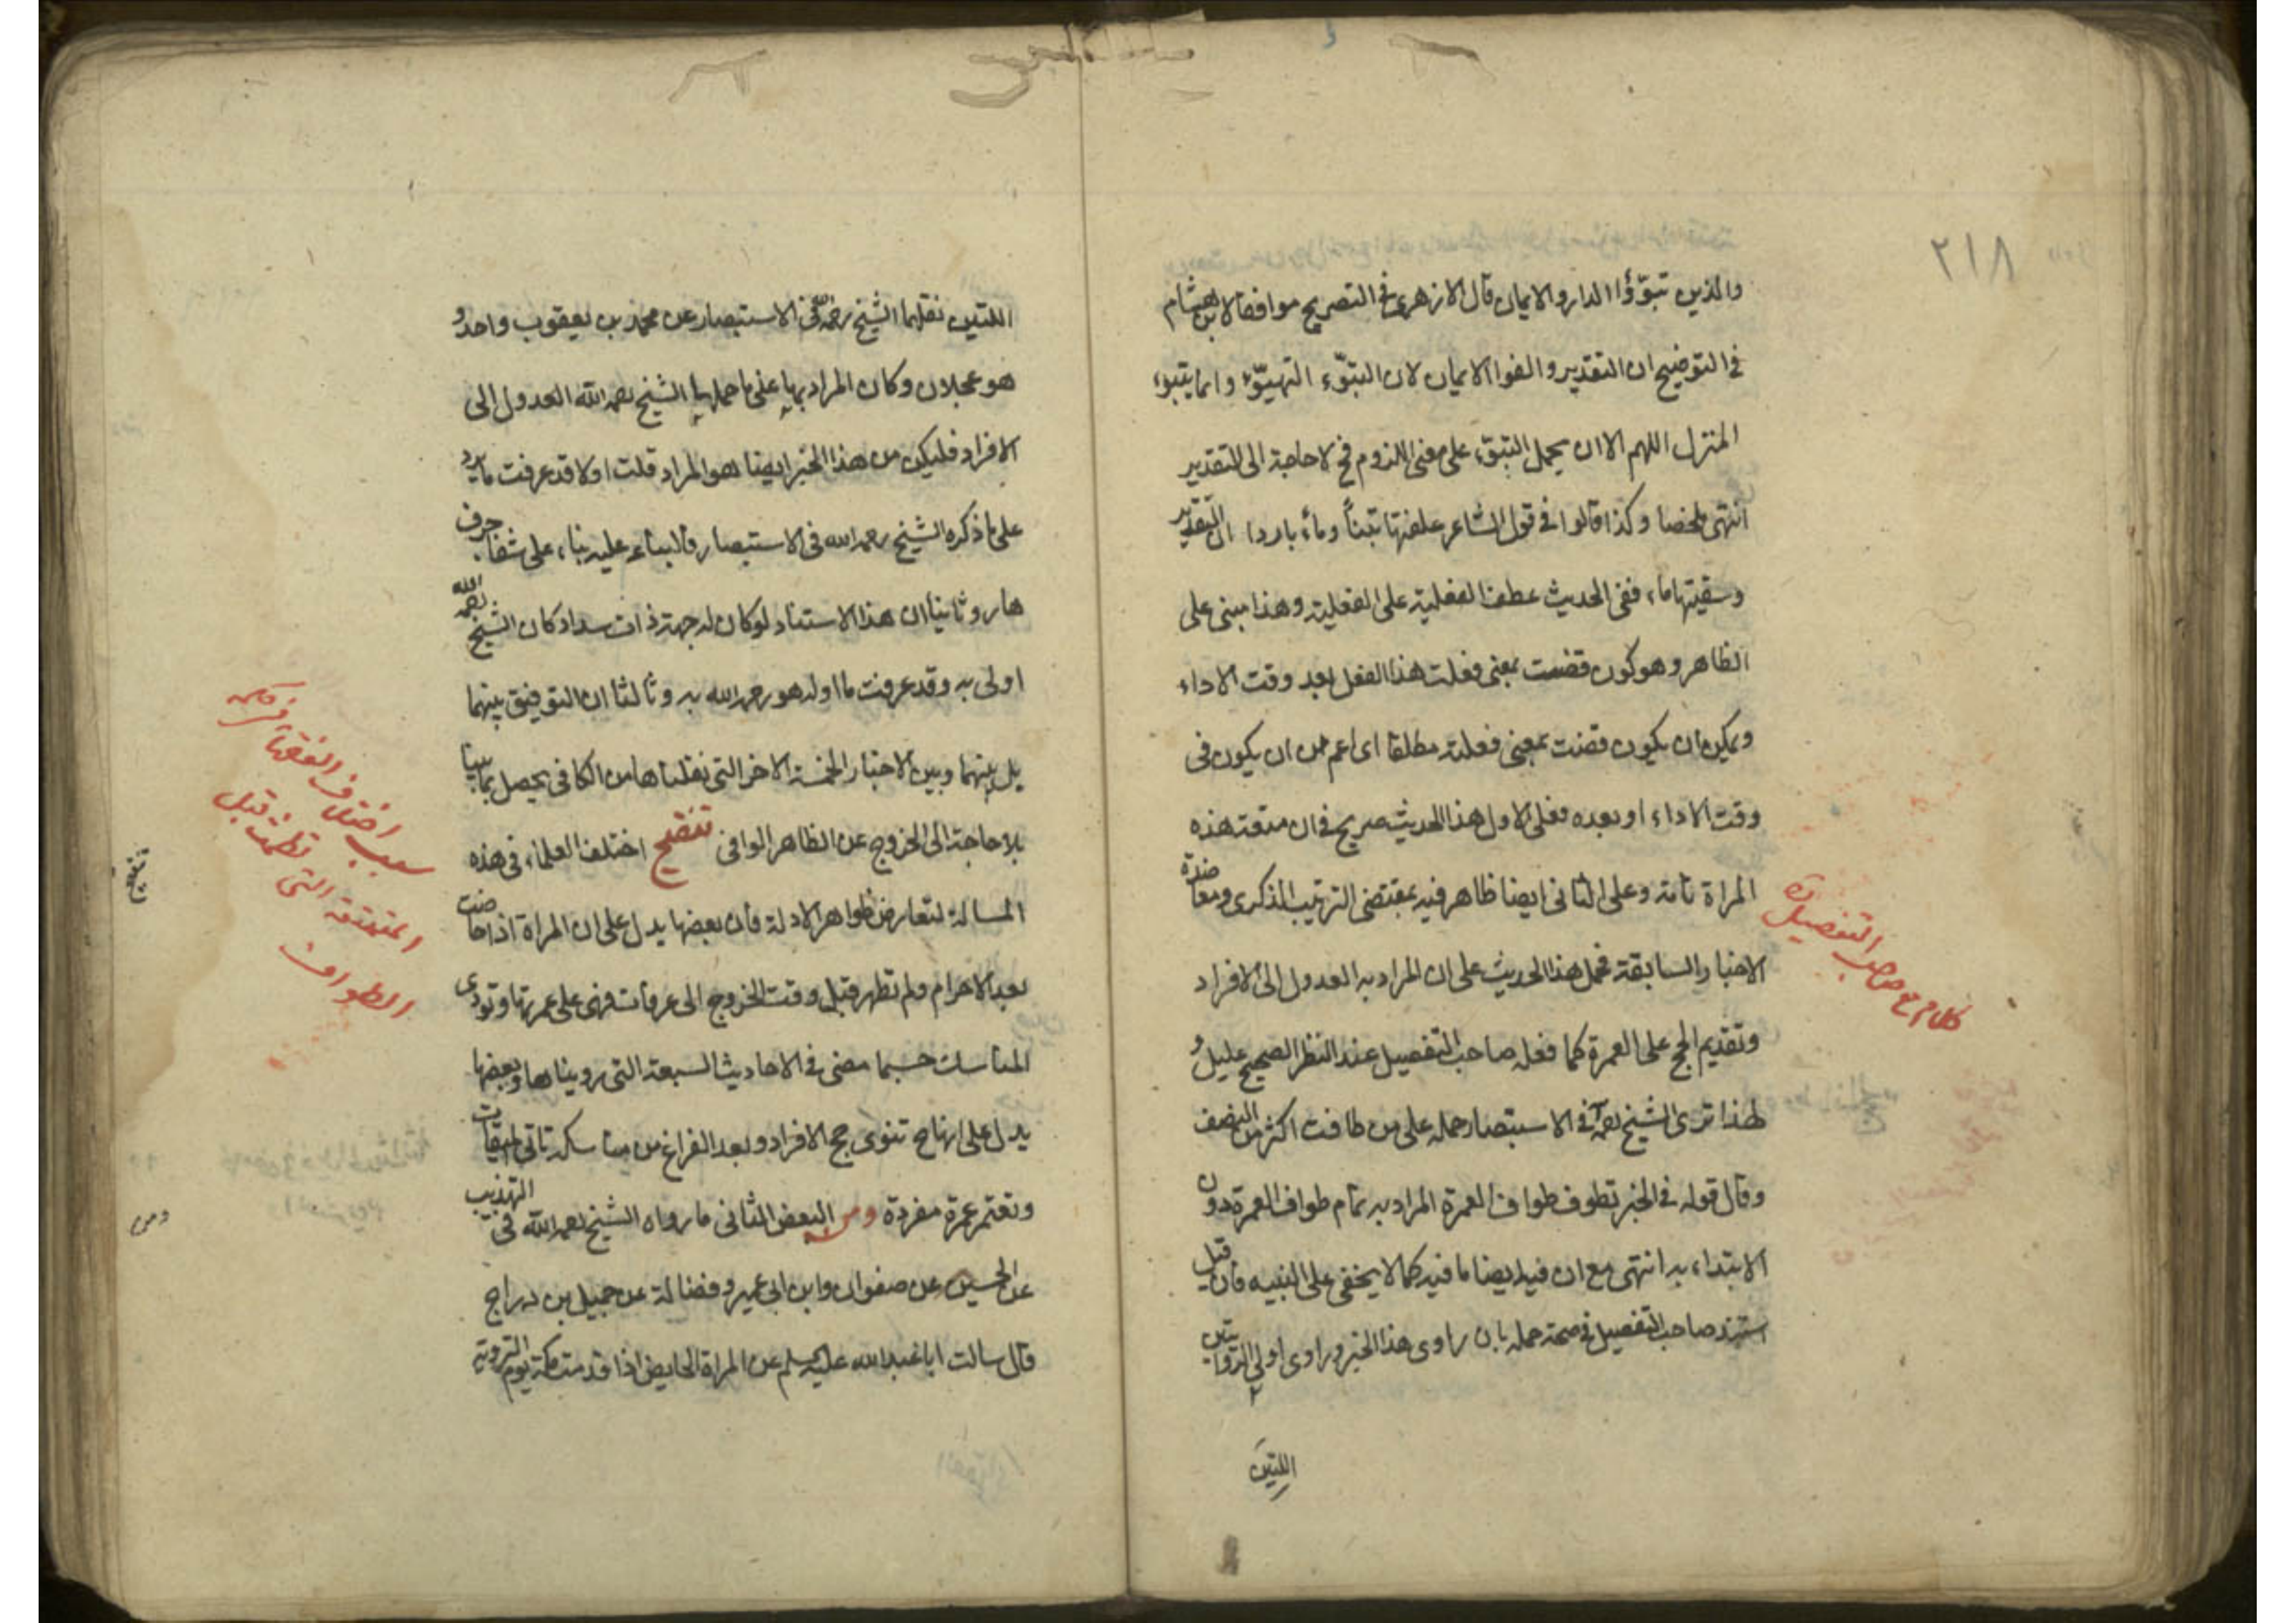 ٢١٨
والذين تبوّؤا الدار والايمان قال الازهرى فى التصريح موافقا لابن هشام
فى التوضيح ان التقدير والفوا الايمان لان التبوّء التهيّؤ وانما يتبوء
المنزل اللهم الا ان يحمل التبوّء على معنى اللزوم فح لا حاجة الى التقدير
انتهى ملخصا وكذا قالوا فى قول الشاعر علفتها تبناً وماءً باردا ان التقدير
وسقيتها ماء ففى الحديث عطف الفعلية على الفعلية وهذا مبنى على
الظاهر وهو كون قضت بمعنى فعلت هذا الفعل بعد وقت الاداء
ويمكن ان يكون قضت بمعنى فعلته مطلقا اى اعم من ان يكون فى
وقت الاداء او بعده فعلى الاول هذا الحديث صريح فى ان متعة هذه
المراة تامة وعلى الثانى ايضا ظاهر فيه بمقتضى الترتيب الذكرى ومعاضدة
الاخبار السابقة فحمل هذا الحديث على ان المراد به العدول الى الافراد
وتقديم الحج على العمرة كما فعله صاحب التفصيل عند النظر الصحيح عليل و
لهذا ترى الشيخ رحمه الله فى الاستبصار حمله على من طافت اكثر من النصف
وقال قوله فى الخبر تطوف طواف العمرة المراد به تمام طواف العمرة دون
الابتداء به انتهى مع ان فيه ايضا ما فيه كما لا يخفى على النبيه فان قيل
استند صاحب التفصيل فى صحة حمله بان راوى هذا الخبر وراوى اولى الروايتين
اللتين
كلام مع صاحب التفصيل
اللتين نقلهما الشيخ رحمه الله فى الاستبصار عن محمد بن يعقوب واحد و
هو عجلان وكان المراد بهما على ما حملهما الشيخ رحمه الله العدول الى
الافراد فليكن من هذا الخبر ايضا هو المراد قلت اولا قد عرفت ما يرد
على ما ذكره الشيخ رحمه الله فى الاستبصار فالبناء عليه بناء على شفا جرف
هار وثانيا ان هذا الاستناد لو كان له جهة ذات سداد كان الشيخ رحمه الله
اولى به وقد عرفت ما اوله هو رحمه الله به وثالثا ان التوفيق بينهما
بل بينهما وبين الاخبار الخمسة الاخر التى نقلناها من الكافى يحصل بما بينا
بلا حاجة الى الخروج عن الظاهر الوافى تنقيح اختلف العلماء فى هذه
المسالة لتعارض ظواهر الادلة فان بعضها يدل على ان المراة اذا حاضت
بعد الاحرام ولم تطهر قبل وقت الخروج الى عرفات فهى على عمرتها وتودى
المناسك حسبما مضى فى الاحاديث السبعة التى رويناها وبعضها
يدل على انها ح تنوى حج الافراد وبعد الفراغ من مناسكه تاتى الميقات
وتعتمر عمرة مفردة ومن البعض الثانى ما رواه الشيخ رحمه الله فى التهذيب
عن الحسين عن صفوان وابن ابى عمير وفضالة عن جميل بن دراج
قال سالت ابا عبد الله عليه السلم عن المراة الحايض اذا قدمت مكة يوم التروية
سبب اختلاف الفقها فى حكم
المتمتعة التى تطمث قبل
الطواف
تنقيح
ومن